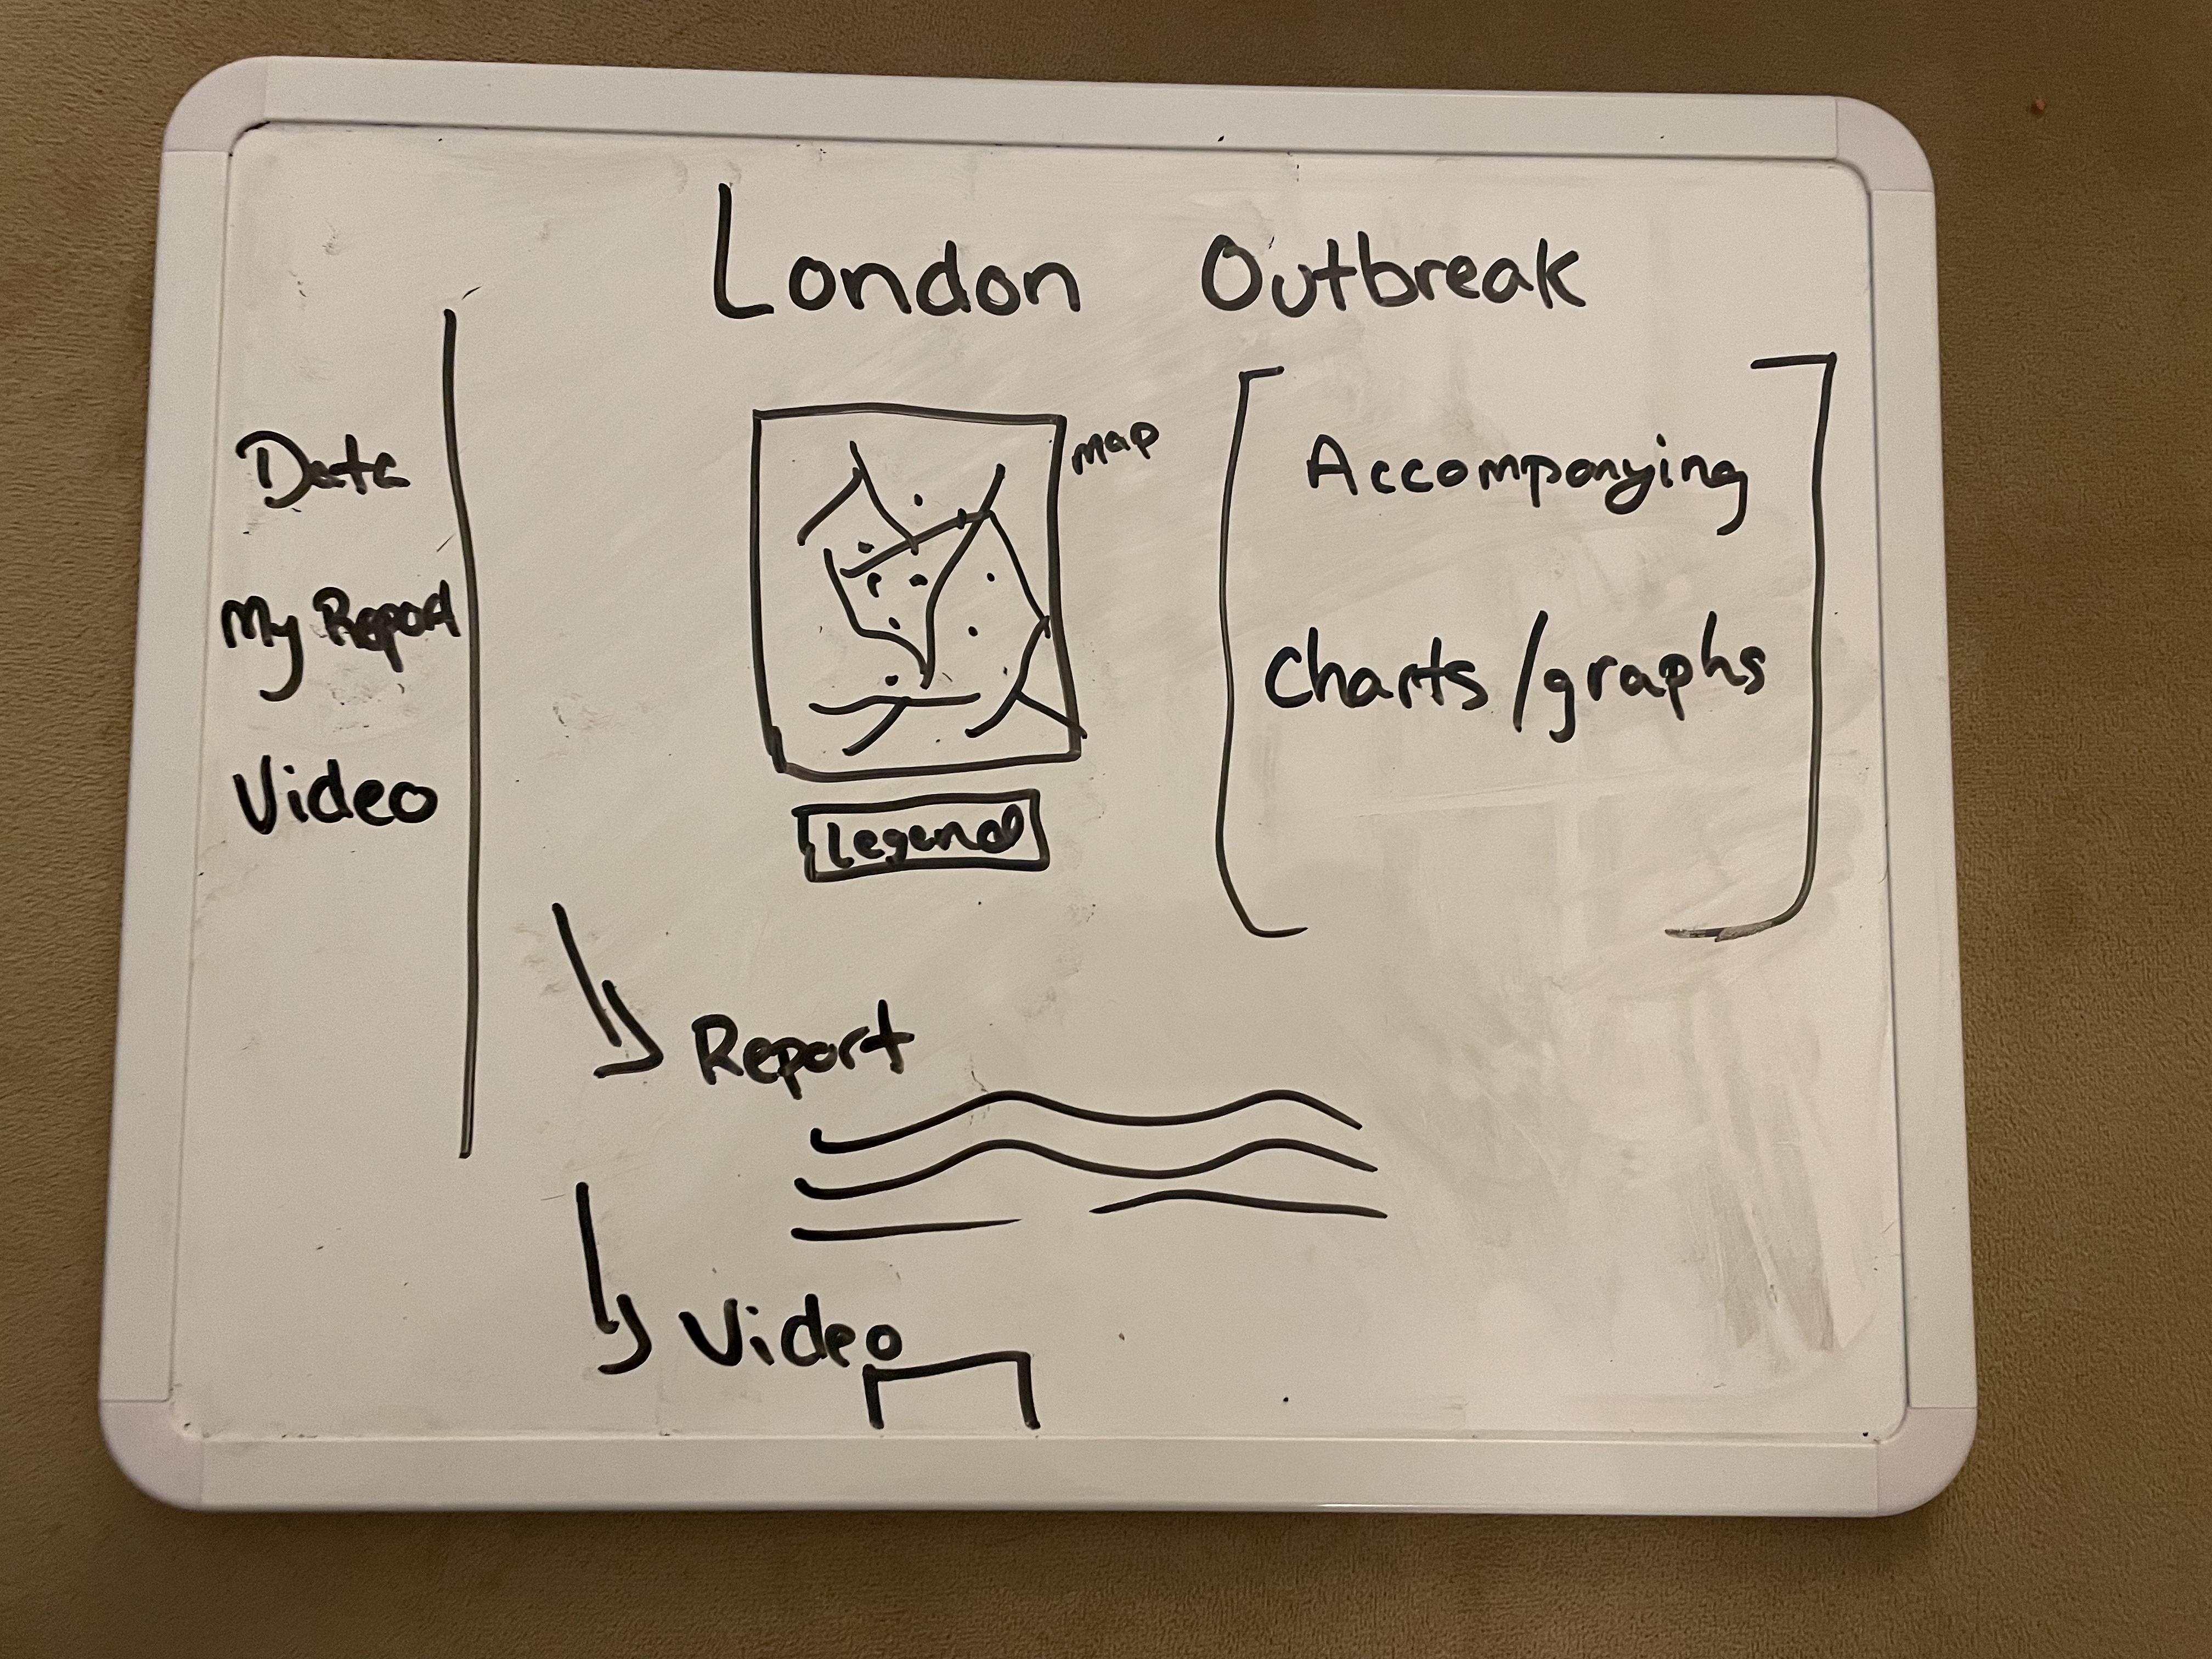 London Outbreak
Data
My Report
Video
map
Legend
Accompanying
Charts/graphs
Report
Video